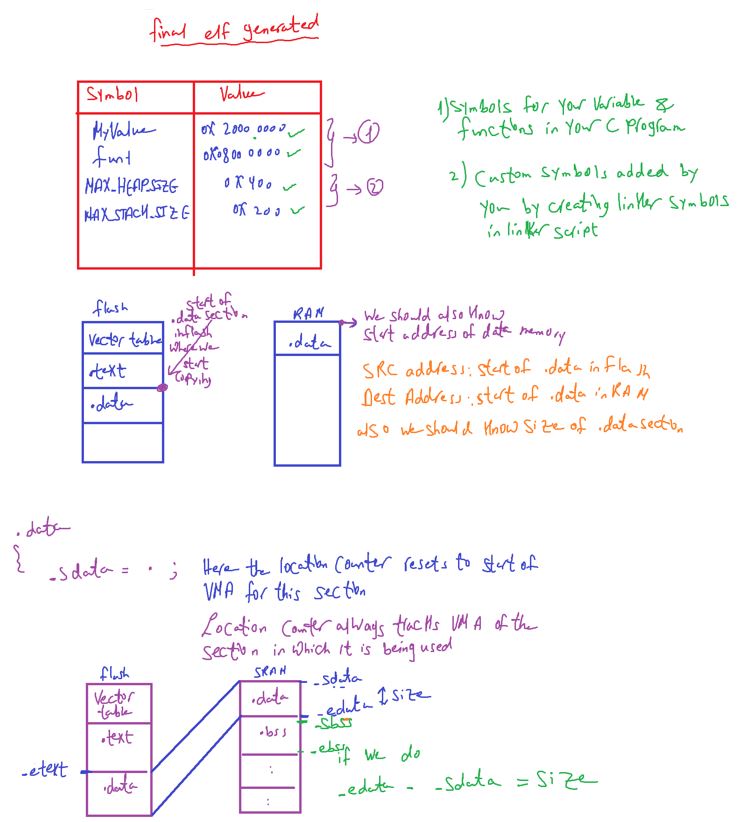 final elf generated
Symbol Value
MyValue 0X 2000.0000 ✓
fun1 0X0800 0000 ✓
→ ①
MAX_HEAP_SIZE 0X400 ✓
MAX_STACK_SIZE 0X 200 ✓
→ ②
1) Symbols for your Variable &
functions in your C Program
2) Custom Symbols added by
you by creating linker symbols
in linker script
flash
Vector table
.text
.data
start of
.data section
in flash
where we
start
copying
RAM
.data
→ We should also know
start address of data memory
SRC address: start of .data in flash
Dest Address: start of .data in RAM
also we should know size of .data section
.data
{
_sdata = . ;
Here the location Counter resets to start of
VMA for this section
Location Counter always tracks VMA of the
section in which it is being used
flash
Vector
table
.text
_etext
.data
SRAM
.data
.bss
:
:
_sdata
_edata ↕ size
_sbss
_ebss
if we do
_edata - _sdata = size